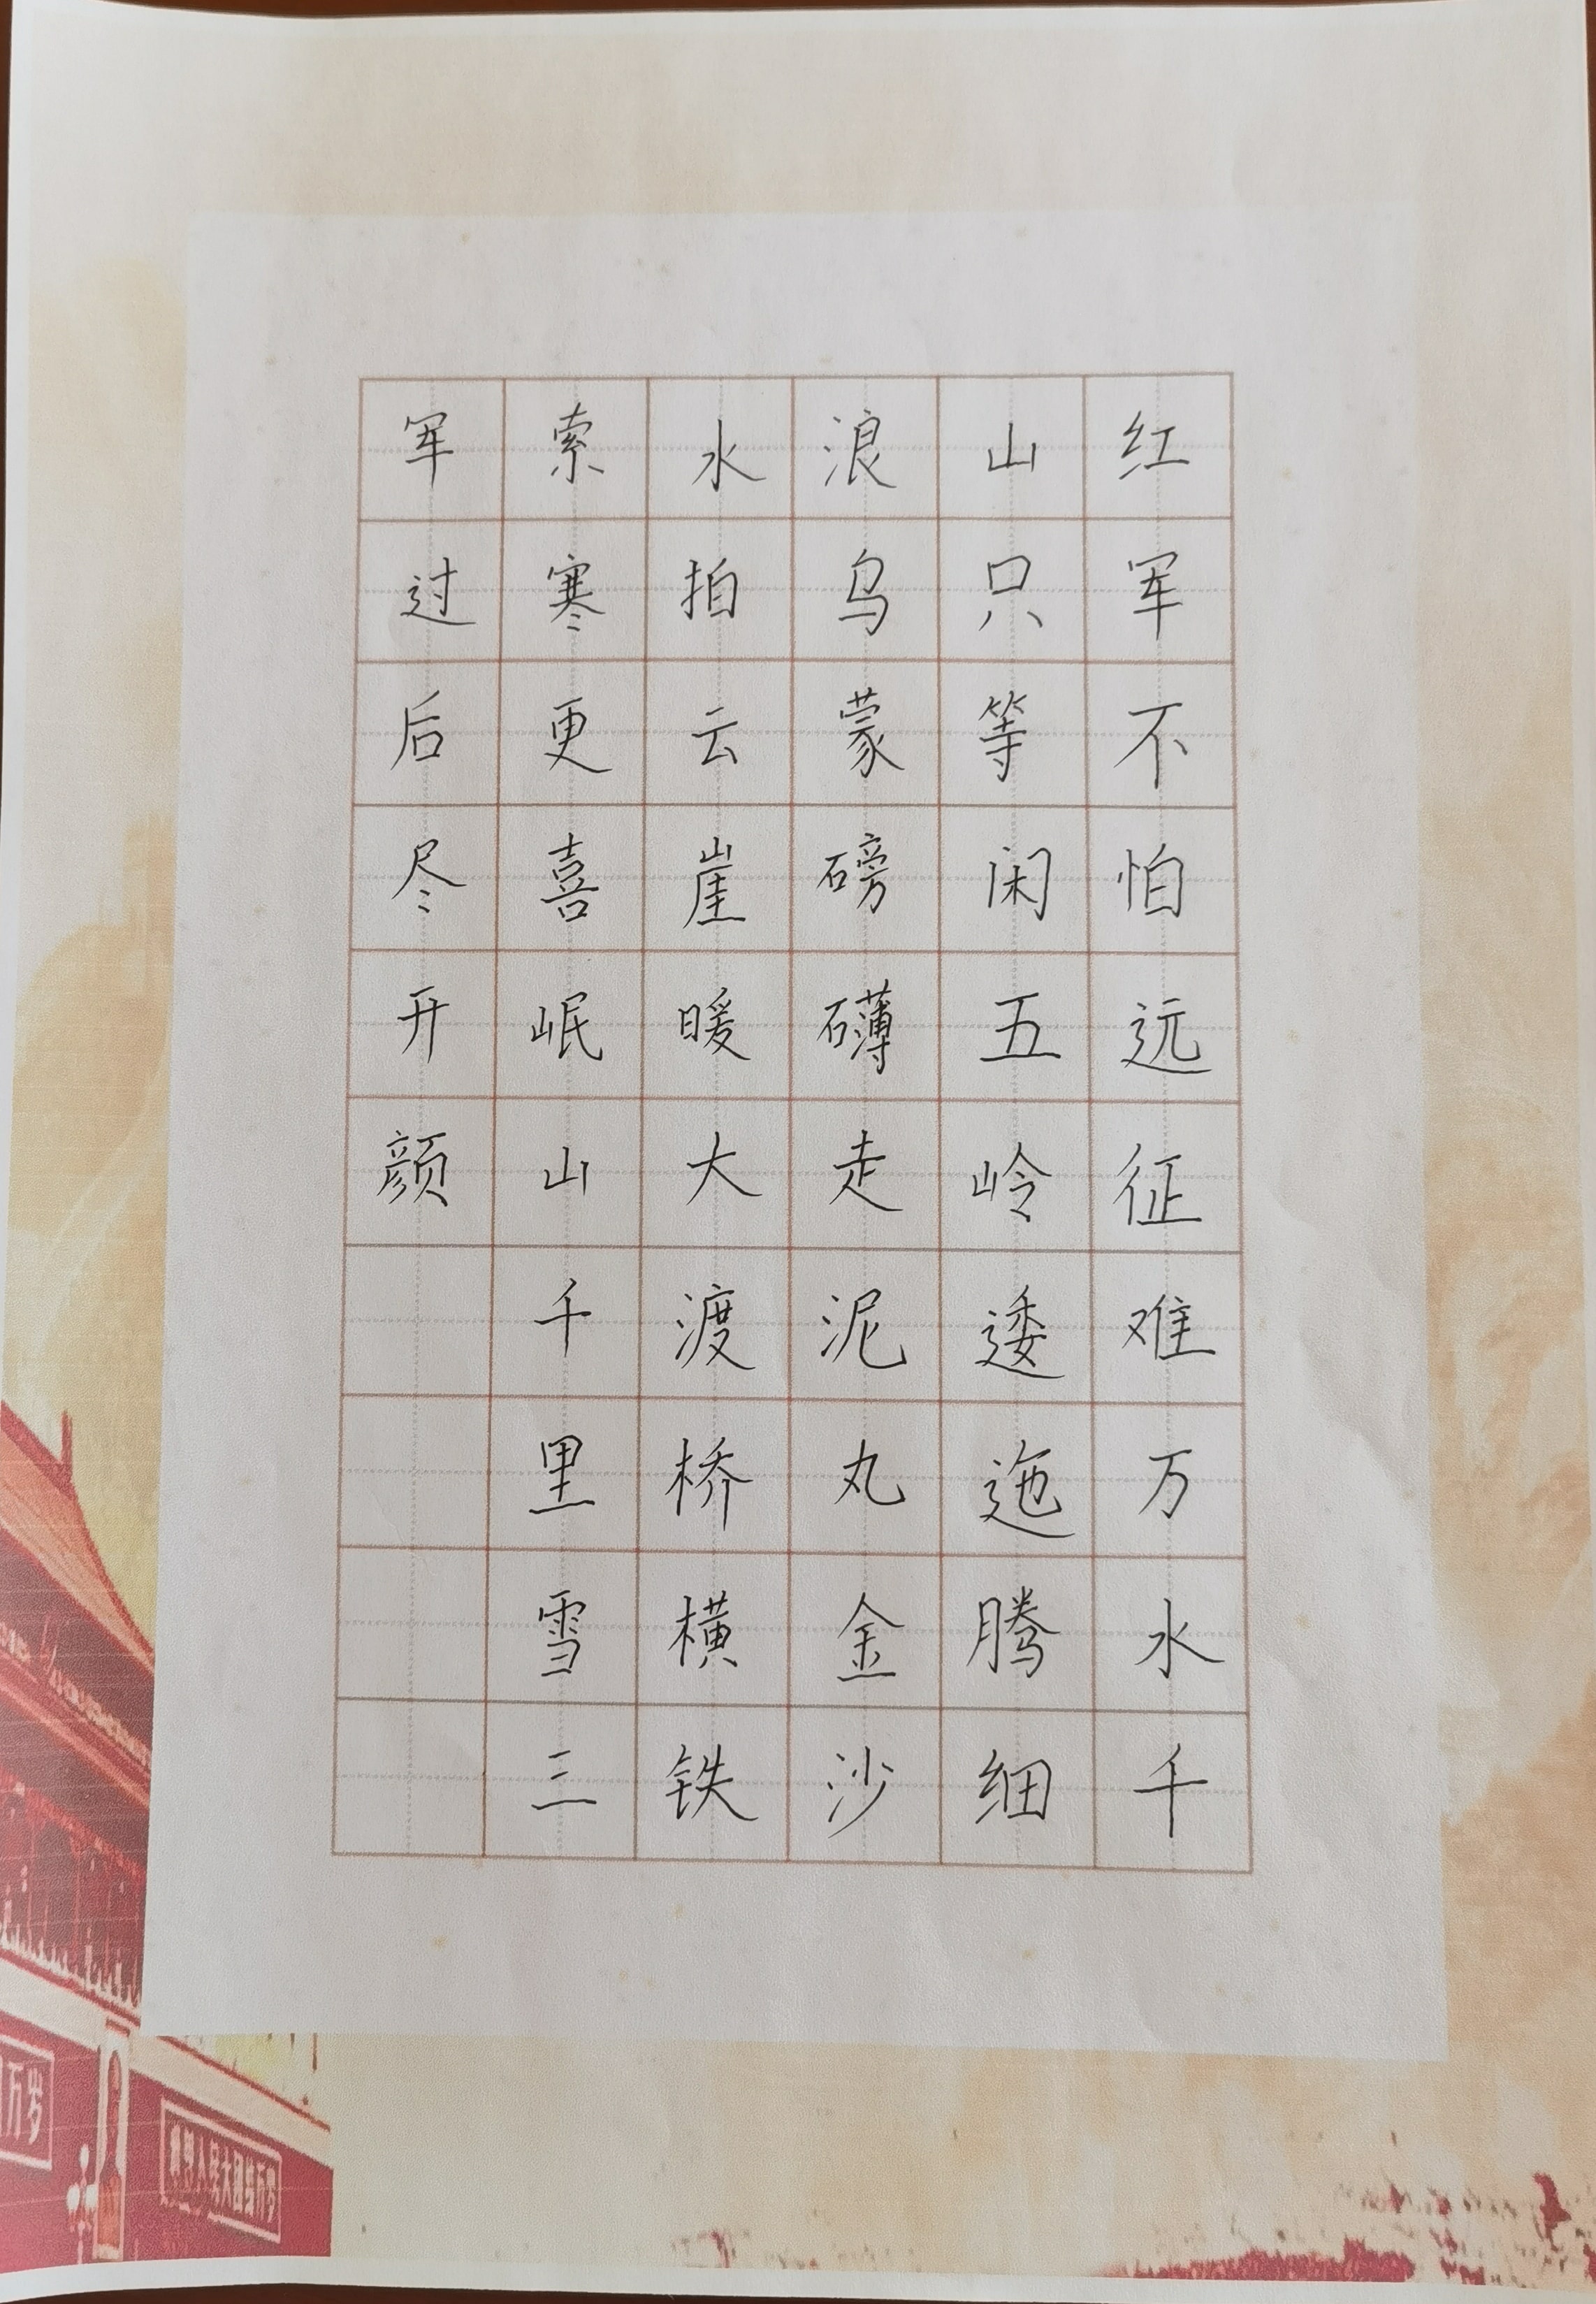 红军不怕远征难万水千
山只等闲五岭逶迤腾细
浪乌蒙磅礴走泥丸金沙
水拍云崖暖大渡桥横铁
索寒更喜岷山千里雪三
军过后尽开颜
万岁
人民大团结万岁